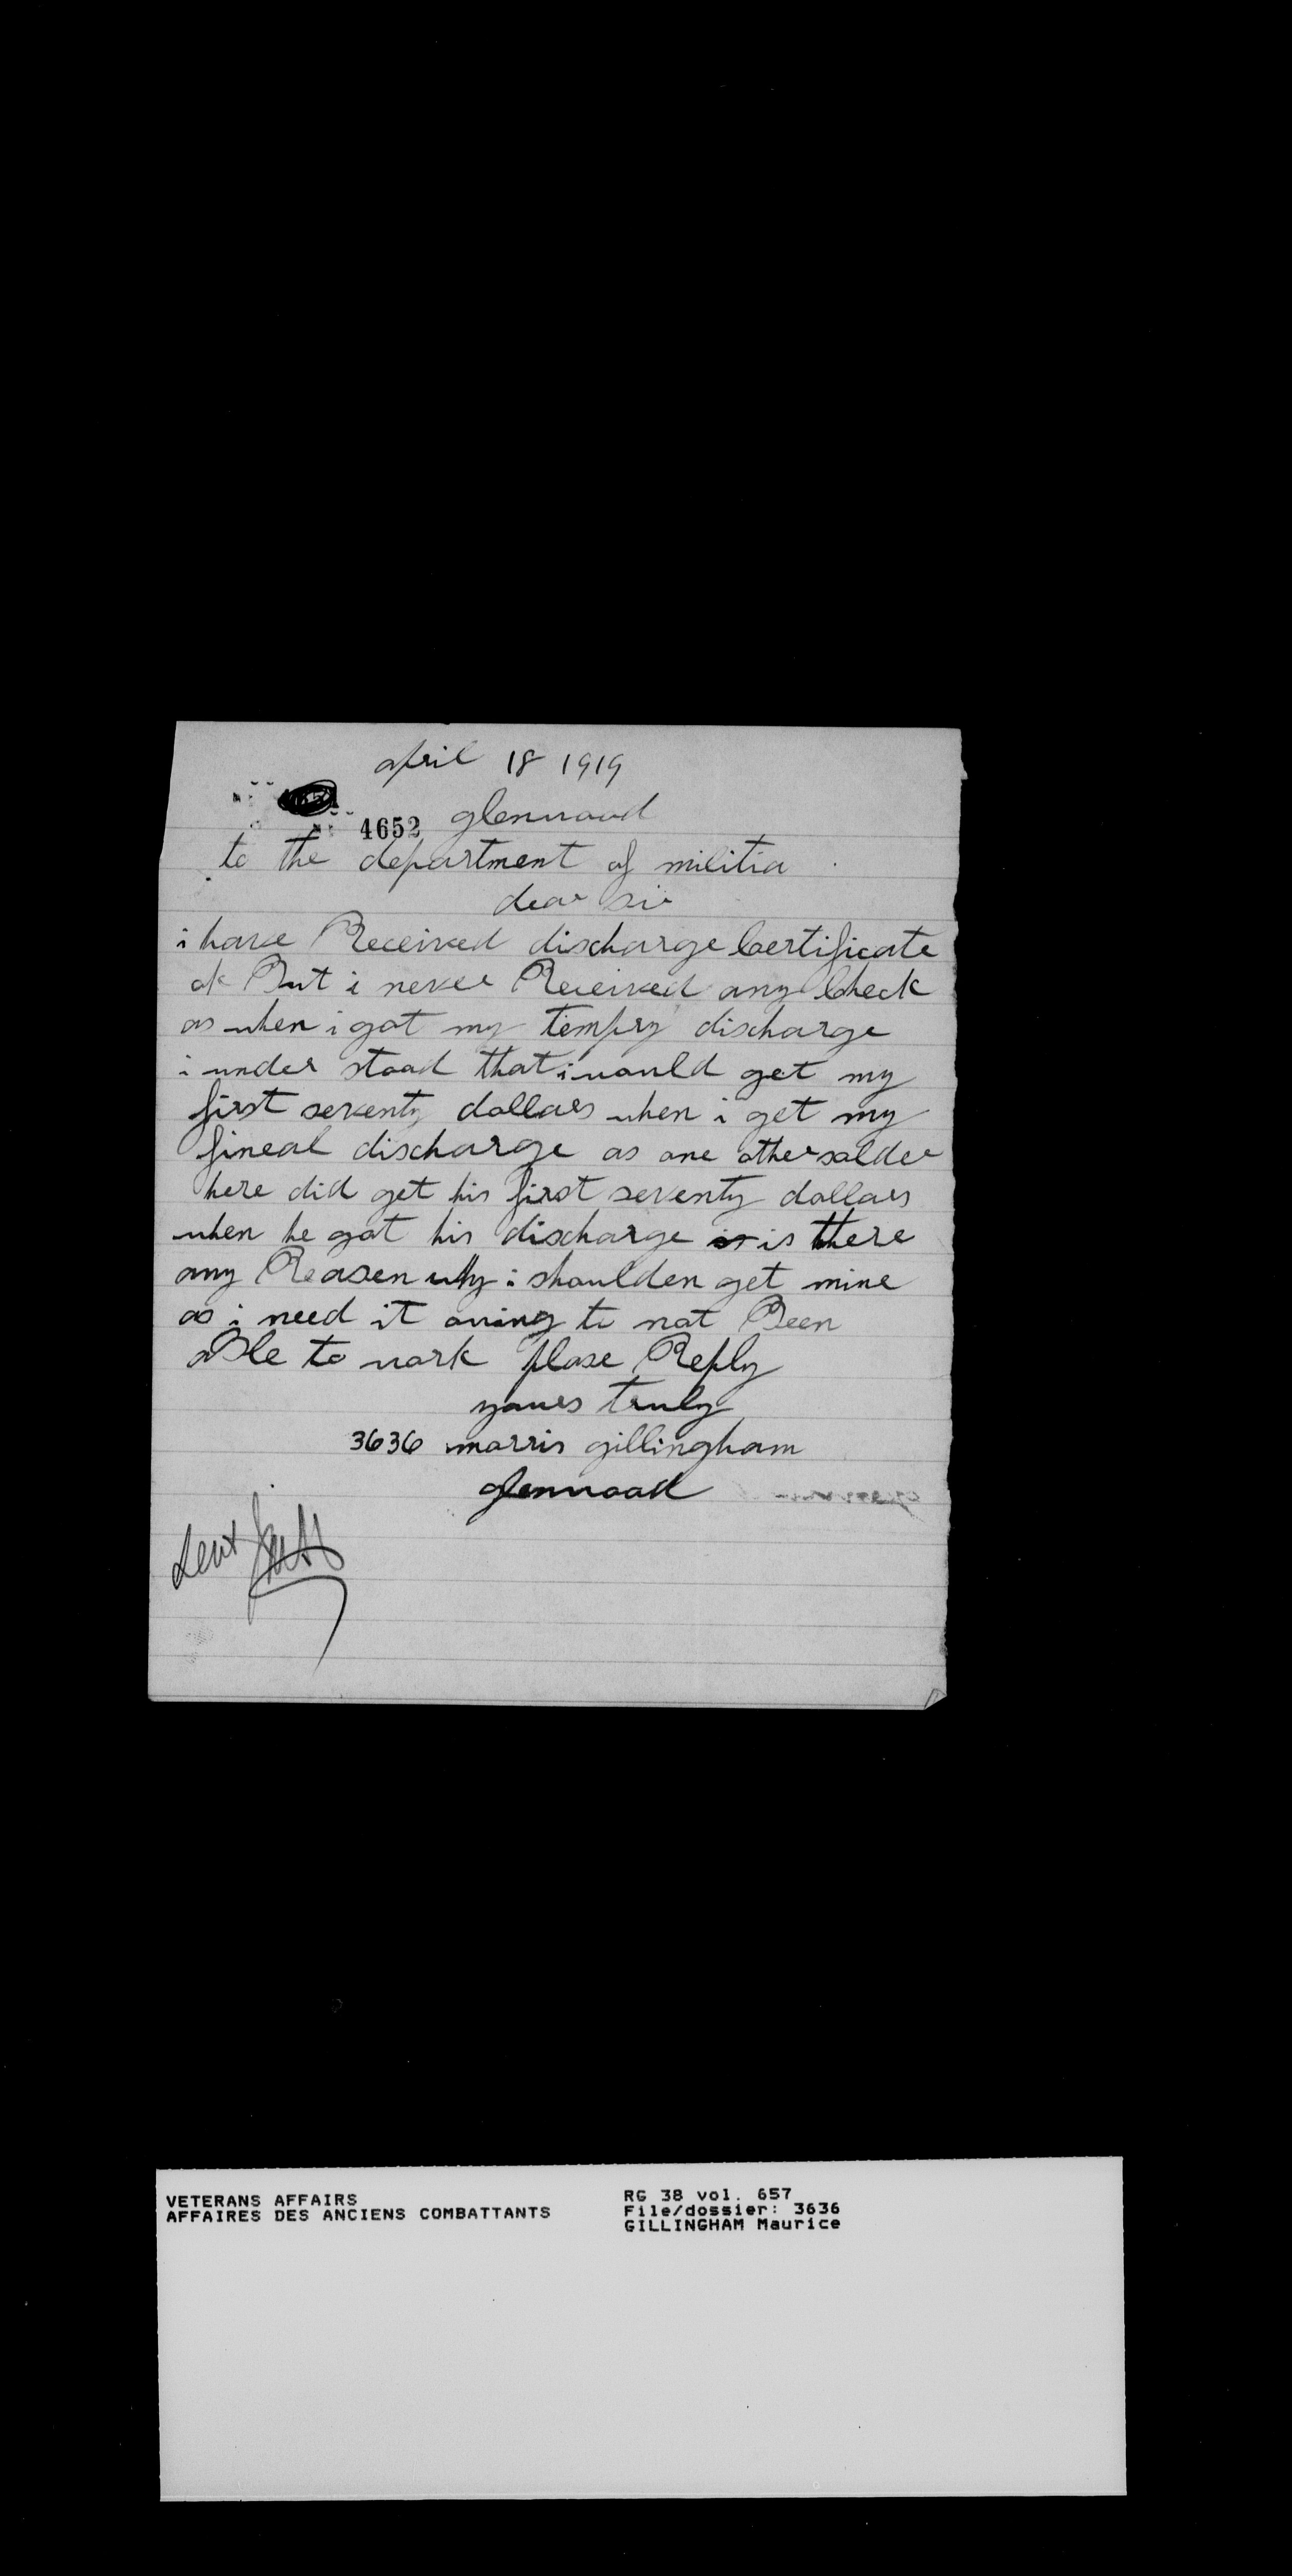 april 18 1919
4652 glenwood
to the department of militia
dear sir
i have Received discharge Certificate
ok But i never Received any Check
as when i got my tempry discharge
i under stood that i would get my
first seventy dollars when i get my
fineal discharge as one other solder
here did get his first seventy dollars
when he got his discharge is is there
any Reasen why i shoulden get mine
as i need it owing to not Been
aBle to work plase Reply
yours truly
3636 morris gillingham
glenwood
Sent
VETERANS AFFAIRS
AFFAIRES DES ANCIENS COMBATTANTS
RG 38 vol. 657
File/dossier: 3636
GILLINGHAM Maurice